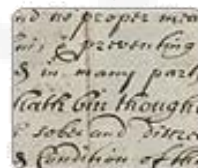 nd no proper mea
preventing
& in many part
hath bin though
sober and discree
& Condition of th